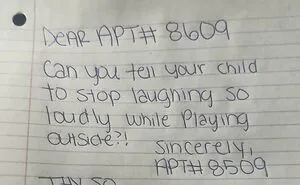 DEAR APT# 8609
Can you tell your child
to stop laughing so
loudly while Playing
outside?!
Sincerely,
APT# 8509